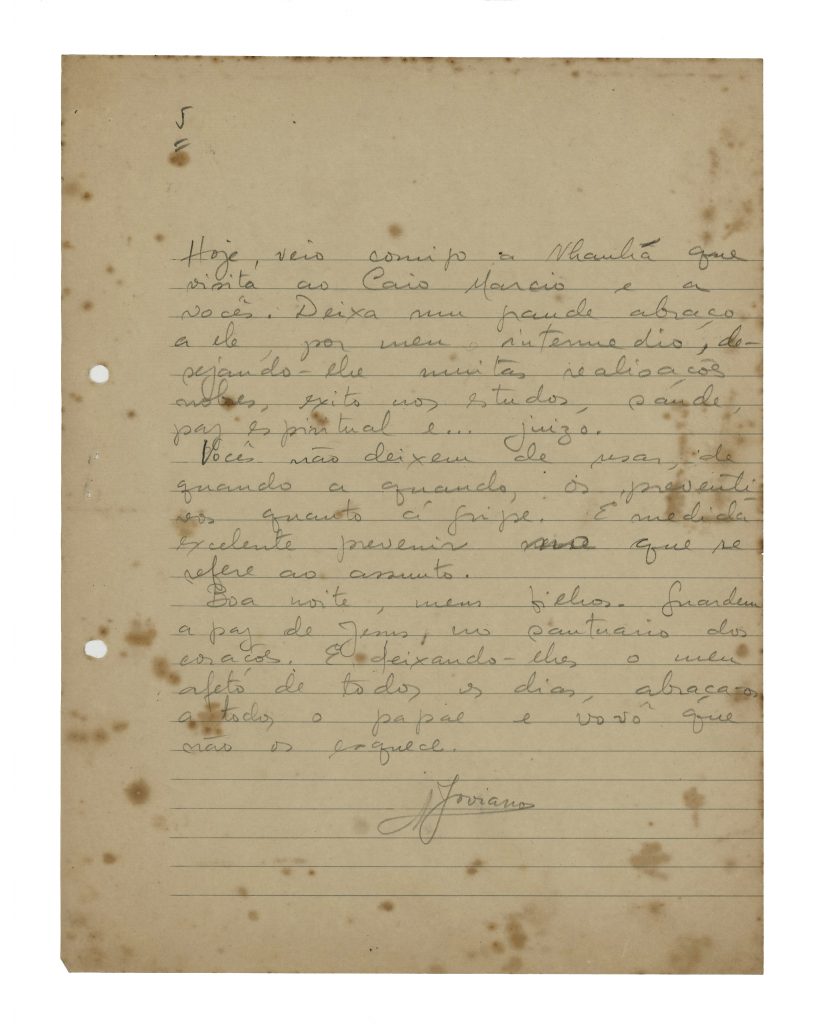 5
=
Hoje, veio comigo a Nhanhá que
visita ao Caio Marcio e a
vocês. Deixa um grande abraço
a ele, por meu intermedio, de-
sejando-lhe muitas realisações
nobres, exito nos estudos, saúde,
paz espiritual e... juizo.
Vocês não deixem de usar, de
quando a quando, os preventi
vos quanto á gripe. E medida
excelente prevenir no que se
refere ao assunto.
Boa noite, meus filhos. Guardem
a paz de Jesus, no santuario dos
corações. E deixando-lhes o meu
afeto de todos os dias, abraça-os
a todos o papae e vovô que
não os esquece.
A Joviano